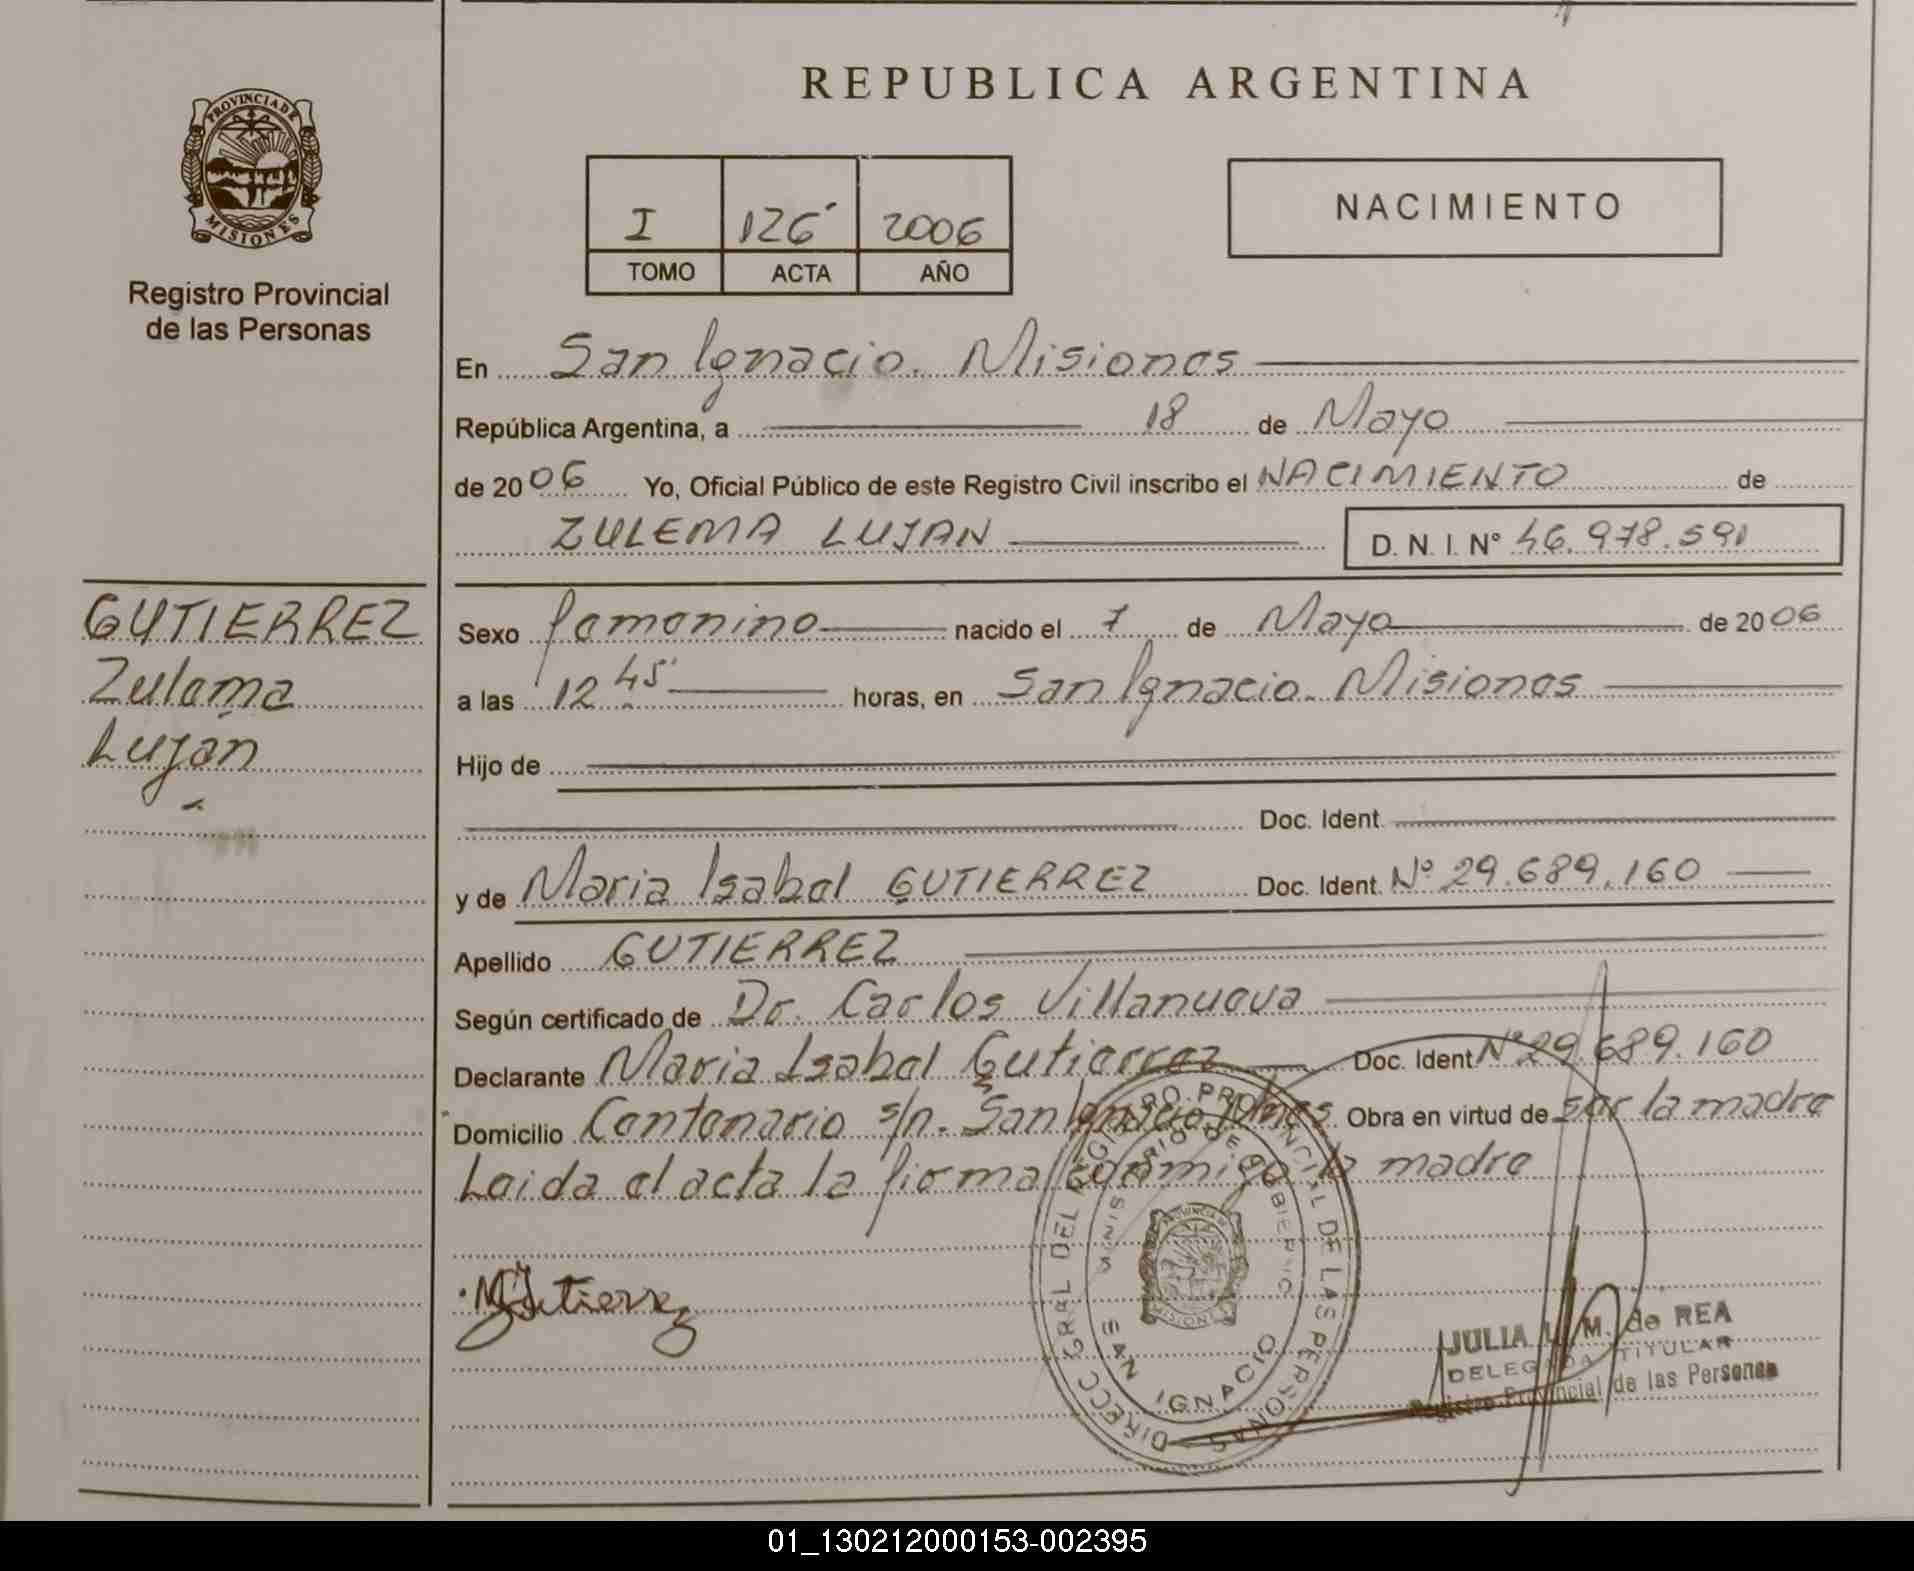 REPUBLICA ARGENTINA
PROVINCIA DE
MISIONES
Registro Provincial
de las Personas
I 126 2006
TOMO ACTA AÑO
NACIMIENTO
En San Ignacio. Misiones
República Argentina, a 18 de Mayo
de 2006 Yo, Oficial Público de este Registro Civil inscribo el NACIMIENTO de
ZULEMA LUJAN D. N. I. Nº 46.978.591
GUTIERREZ
Zulema
Luján
Sexo femenino nacido el 7 de Mayo de 2006
a las 12 45 horas, en San Ignacio. Misiones
Hijo de
Doc. Ident.
y de Maria Isabel GUTIERREZ Doc. Ident. Nº 29.689.160
Apellido GUTIERREZ
Según certificado de Dr. Carlos Villanueva
Declarante Maria Isabel Gutierrez Doc. Ident Nº 29.689.160
Domicilio Centenario s/n. San Ignacio Mnes. Obra en virtud de ser la madre
Leida el acta la firma conmigo la madre
MGutierrez
DIRECC. GRAL DEL REGISTRO PROVINCIAL DE LAS PERSONAS
MINISTERIO DE GOBIERNO
SAN IGNACIO
JULIA M. de REA
DELEGADA TITULAR
Registro Provincial de las Personas
01_130212000153-002395